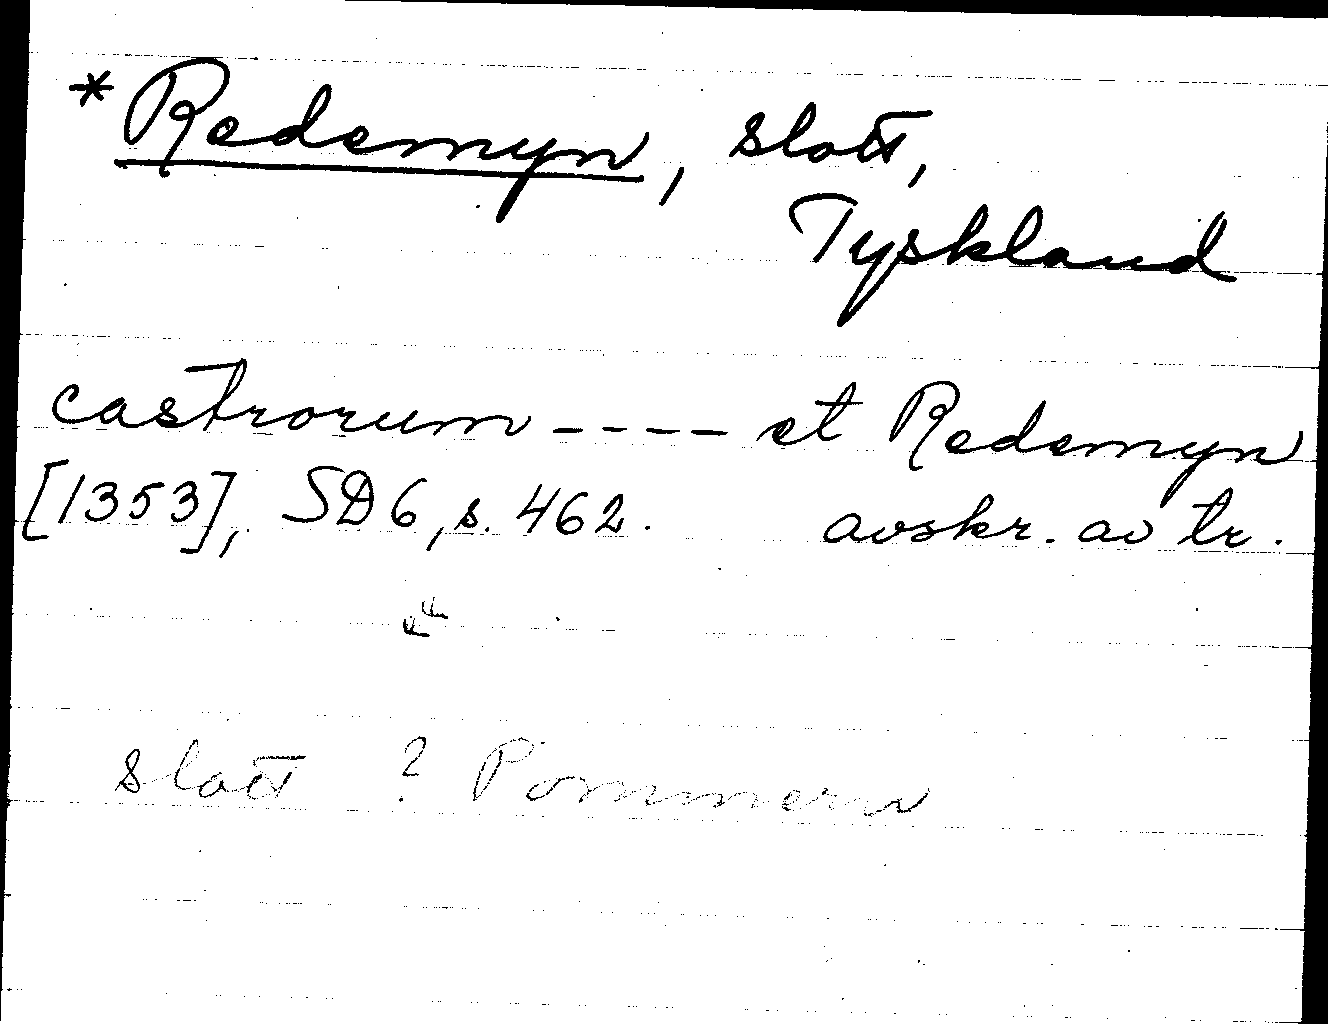 *Redemyn, slott,
Tyskland
castrorum ---- et Redemyn
[1353], SD6, s. 462. avskr. av tr.
slott ? Pommern